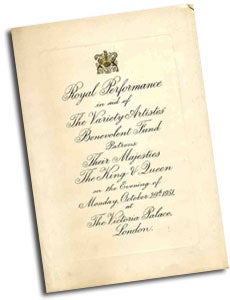 Royal Performance
in aid of
The Variety Artistes'
Benevolent Fund
Patrons
Their Majesties
The King & Queen
on the Evening of
Monday, October 29th 1951,
at
The Victoria Palace,
London.